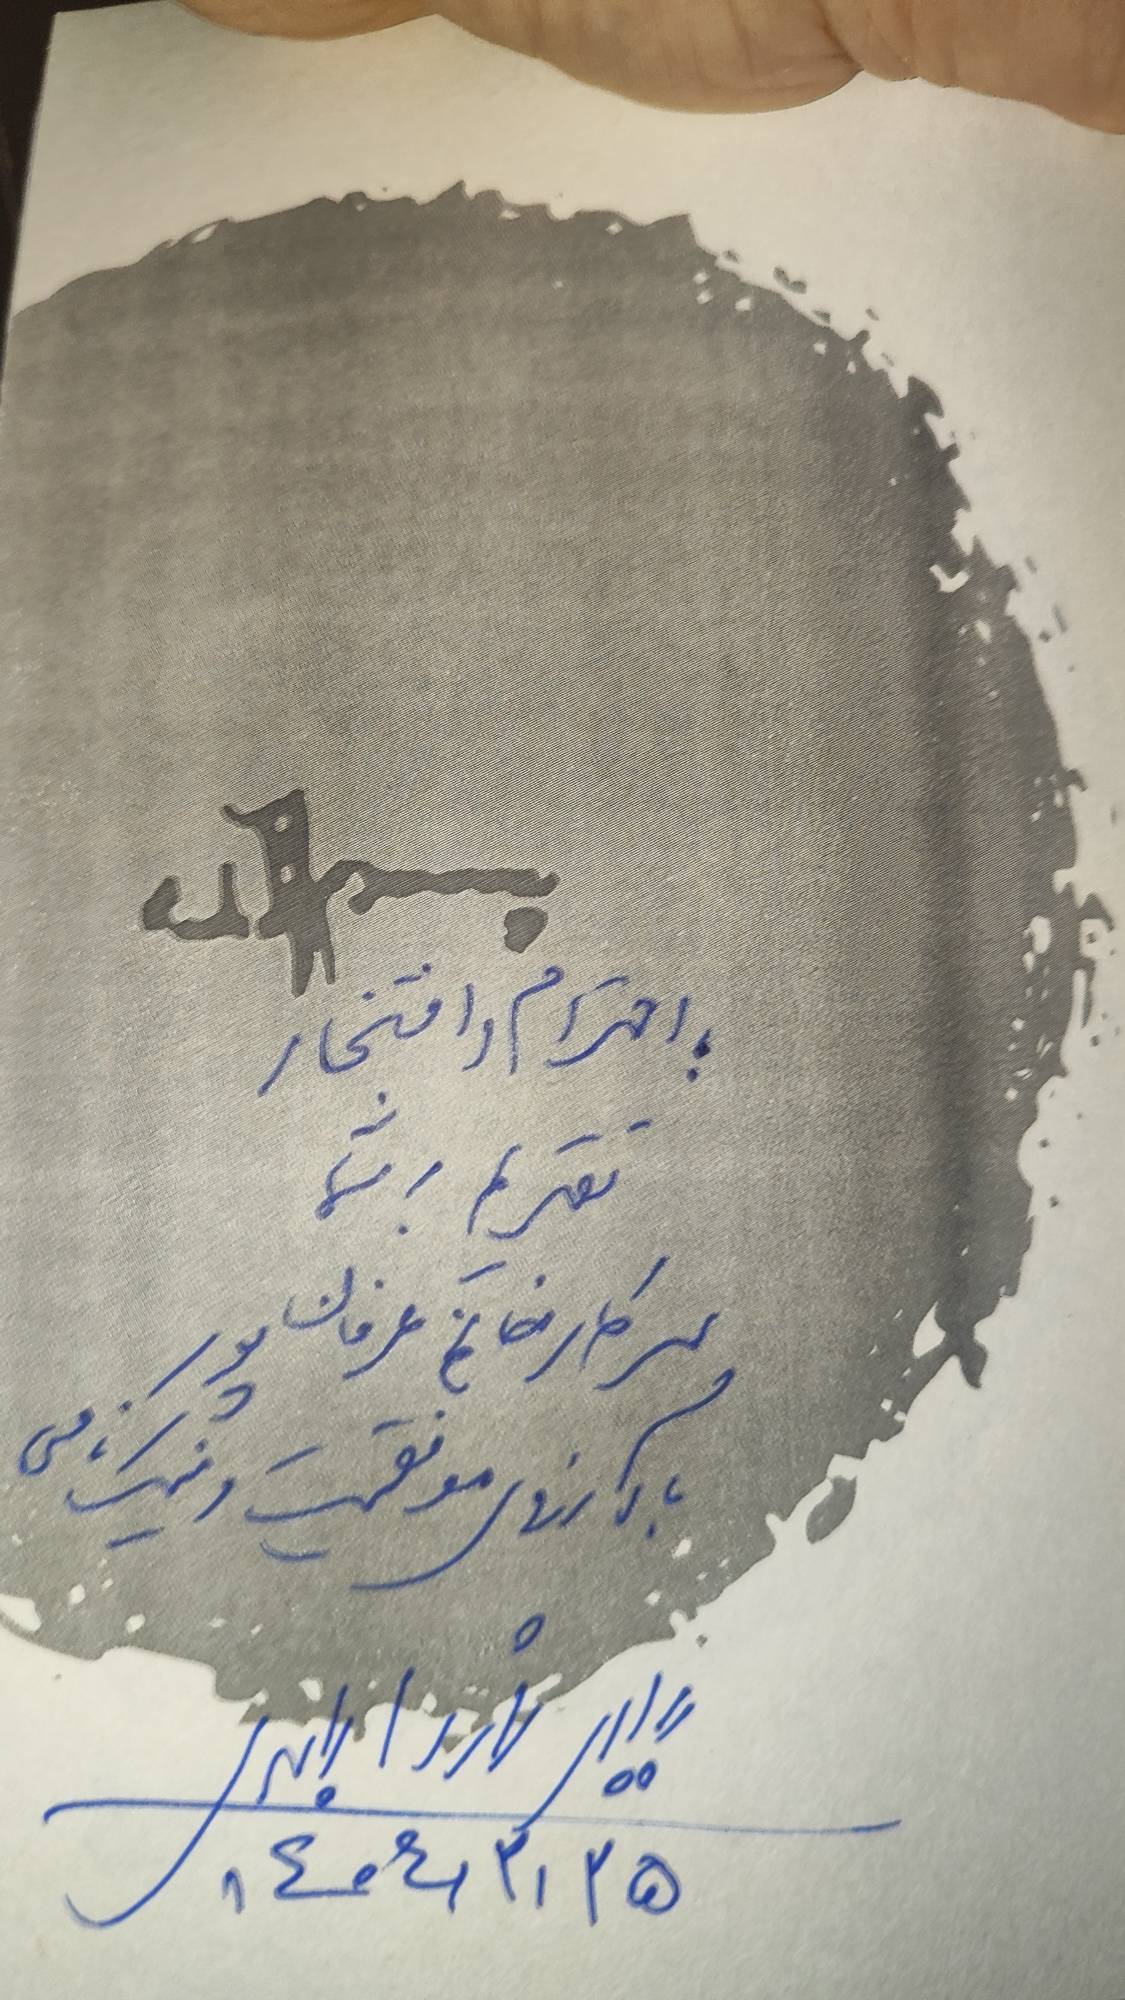 با احترام و افتخار
تقدیم به شما
سرکار خانم عرفان پور
با آرزوی موفقیت و نیک‌نامی
۱۴۰۴/۳/۲۵